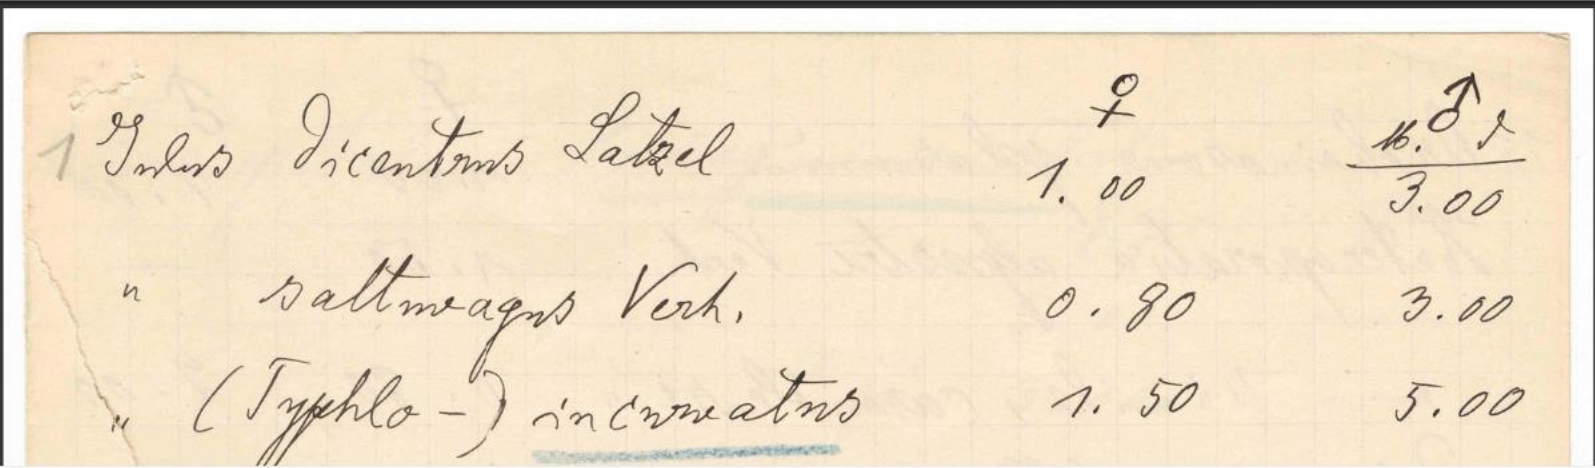 ♀ ♂
Iulus dicentrus Latzel 1.00 3.00
" saltuvagus Verh. 0.80 3.00
" (Typhlo-) incurvatus 1.50 5.00